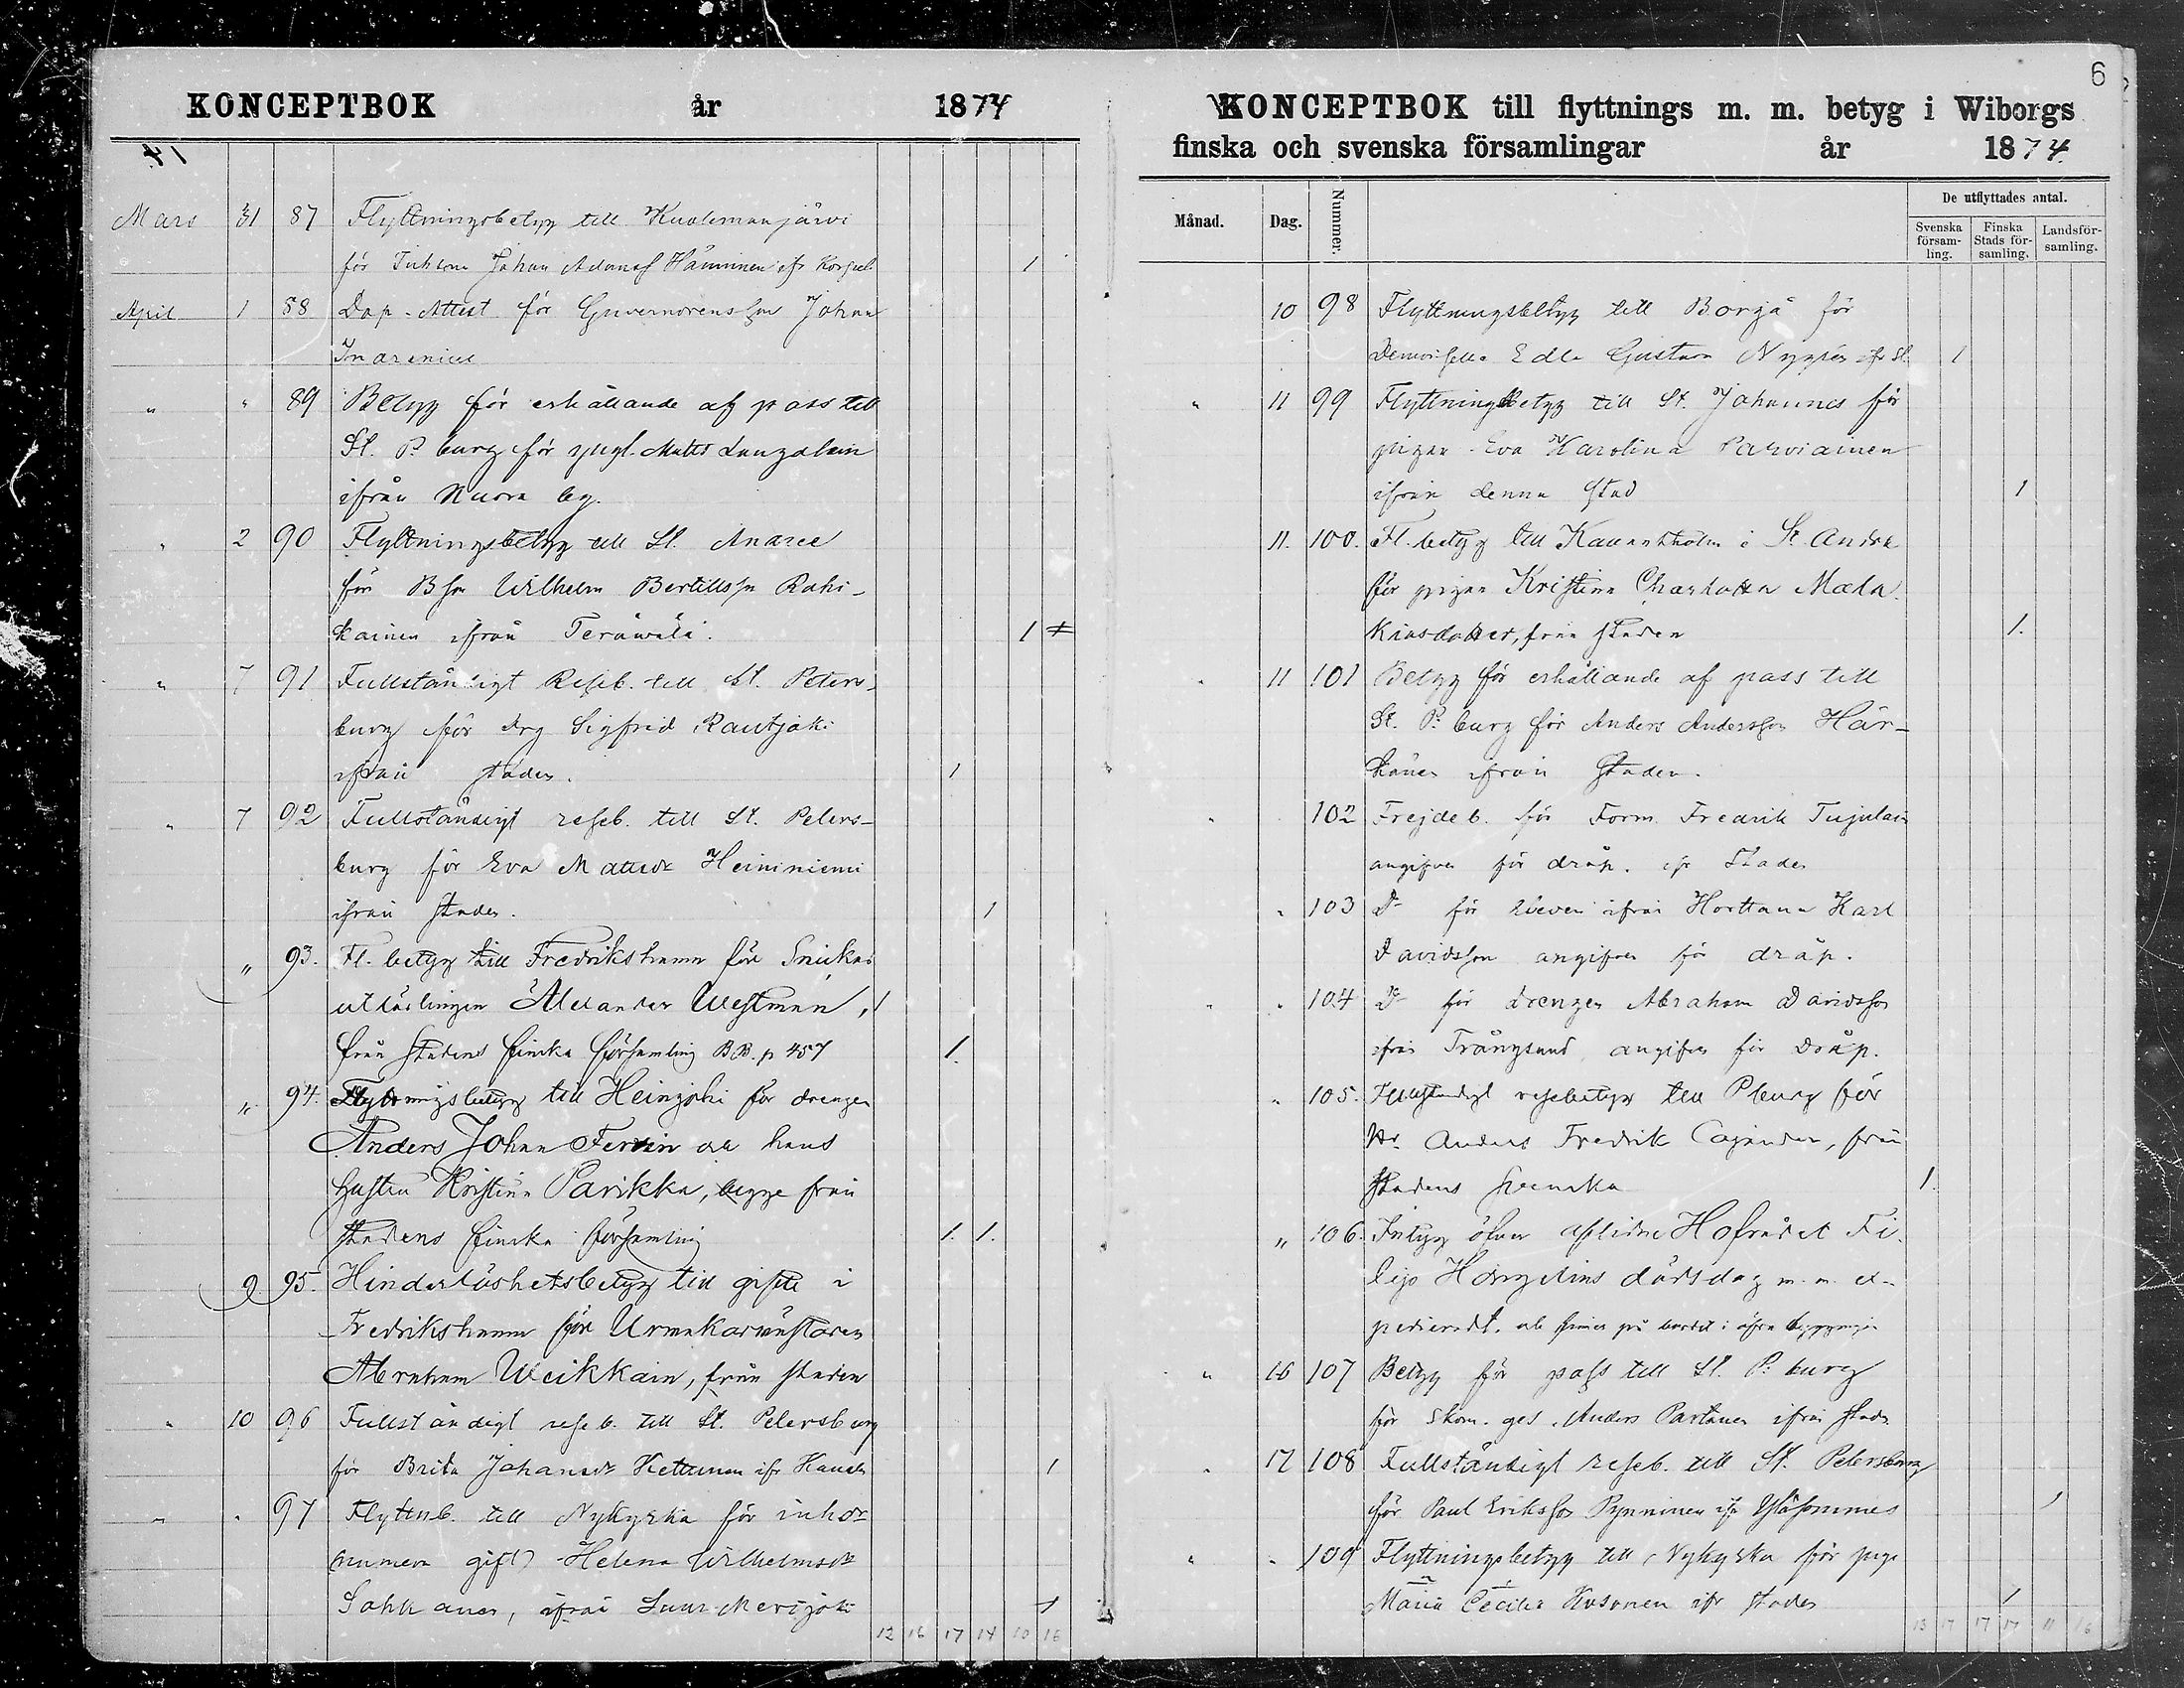 KONCEPTBOK år 1874
41
Mars 31 87 Flyttningsbetyg till Kuolemanjärvi
för Johan Adamsf Hänninen ifr 1
April 1 88 Dop-Attest för Guvernörens Johan
" " 89 Betyg för erhållande af pass till
St. P. burg för yngl. Matts
ifrån Nuora by.
" 2 90 Flyttningsbetyg till St. Andree
för Bson Wilhelm Bertillsson Rahi-
kainen ifrån Teräwälä. 1
" 7 91 Fullständigt Reseb. till St. Peters-
burg för drg Sigfrid Rautjoki
ifrån staden. 1
" 7 92 Fullständigt reseb. till St. Peters-
burg för Eva Mattsdr Heininiemi
ifrån staden. 1
" 93. Fl. betyg till Fredrikshamn före Snickar
utlärlingen Alexander Westman, 1
från stadens finska församling BB. p 457 1.
" 94. Flyttningsbetyg till Heinjoki för drengen
Anders Johan och hans
hustru Kristina Parikka, begge från
stadens finska församling 1. 1.
9. 95. Hinderlöshetsbetyg till gifte i
Fredrikshamn före Urmakaremästaren
Abraham Weikkain, från staden
" 10 96 Fullständigt reseb. till St. Petersburg
för Brita Johansdr Kettunen ifr 1
" " 97 Flyttnb. till Nykyrka för inhdr
(numera gift) Helena Wilhelmsdr
Sohkanen, ifrån Suur-Merijoki 1
12 16 17 14 10 16
6
KONCEPTBOK till flyttnings m. m. betyg i Wiborgs
finska och svenska församlingar år 1874.
Månad. Dag. Nummer. De utflyttades antal.
Svenska församling. Finska Stads församling. Landsförsamling.
10 98 Flyttningsbetyg till Borgå för
Demoiselle Edla Gustava Nygrén ifr St. 1
" 11 99 Flyttningsbetyg till St. Johannes för
pigan Eva Karolina Parviainen
ifrån denna stad 1
11. 100. Fl. betyg till Kavantholm i St. Andree
för pigan Kristina Charlotta Mala
kiasdotter, från staden 1.
" 11 101 Betyg för erhållande af pass till
St. P. burg för Anders Andersson Här-
könen ifrån staden.
" 102 Frejdeb. för Form. Fredrik
angifven för dråp. ifr Staden
" 103 Do för ifrån Horttana Karl
Davidsson angifven för dråp.
" " 104 Do för drengen Abraham Davidsson
ifrån Trångsund angifven för Dråp.
" 105. Fullständigt resebetyg till Pburg för
Hr. Anders Fredrik Cajander, från
stadens svenska 1.
" 106. Intyg öfver aflidne Hofrådet Fi
lip dödsdag m. m. ex-
pedieradt. och finnes på bordet i
" 16 107 Betyg för pass till St. P. burg
för Skom. ges. Anders Partanen ifrån staden
" 17 108 Fullständigt reseb. till St. Petersburg
för Paul Eriksson Pynninen ifr Yläsommes 1
" " 109 Flyttningsbetyg till Nykyrka för piga
Maria Cecilia Kosonen ifr staden 1
13 17 17 17 11 16